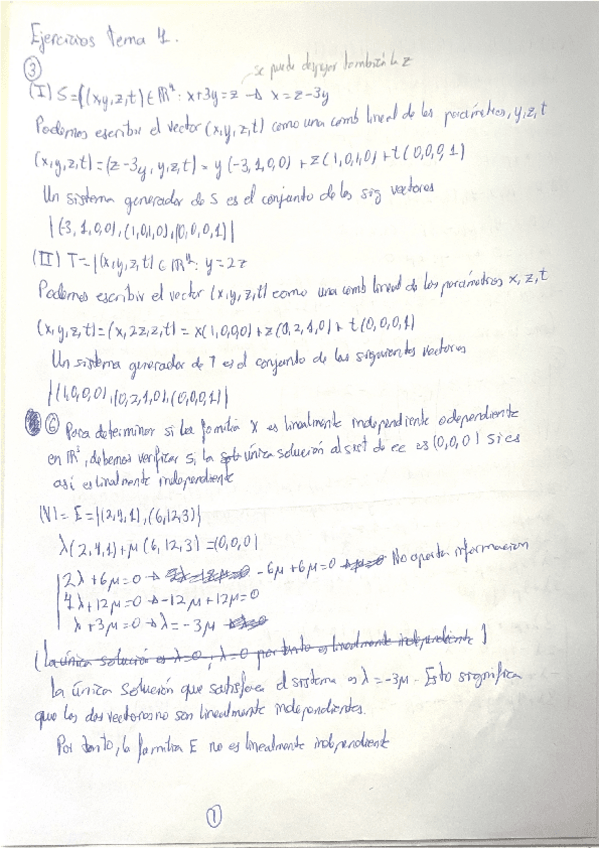 Ejercicios Tema 4.
③
se puede despejar también la z
(I) S={(x,y,z,t) ∈ ℝ⁴: x+3y=z → x=z-3y
Podemos escribir el vector (x,y,z,t) como una comb lineal de los parámetros, y,z,t
(x,y,z,t)=(z-3y,y,z,t)=y(-3,1,0,0)+z(1,0,1,0)+t(0,0,0,1)
Un sistema generador de S es el conjunto de los sig vectores
{(-3,1,0,0),(1,0,1,0),(0,0,0,1)}
(II) T={(x,y,z,t) ∈ ℝ⁴: y=2z
Podemos escribir el vector (x,y,z,t) como una comb lineal de los parámetros x,z,t
(x,y,z,t)=(x,2z,z,t)=x(1,0,0,0)+z(0,2,1,0)+t(0,0,0,1)
Un sistema generador de T es el conjunto de los siguientes vectores
{(1,0,0,0),(0,2,1,0),(0,0,0,1)}
⑥ Para determinar si la familia X es linealmente independiente o dependiente
en ℝ³, debemos verificar si la única solución al sist de ec es (0,0,0) si es
así es linealmente independiente
(V)= E={(2,4,1),(6,12,3)}
λ(2,4,1)+μ(6,12,3)=(0,0,0)
2λ+6μ=0 → -6μ+6μ=0 No aporta informacion
4λ+12μ=0 → -12μ+12μ=0
λ+3μ=0 → λ=-3μ
(La única solución es λ=0, λ=0 por tanto es linealmente independiente)
La única solución que satisface el sistema es λ=-3μ. Esto significa
que los dos vectores no son linealmente independientes.
Por tanto, la familia E no es linealmente independiente
①